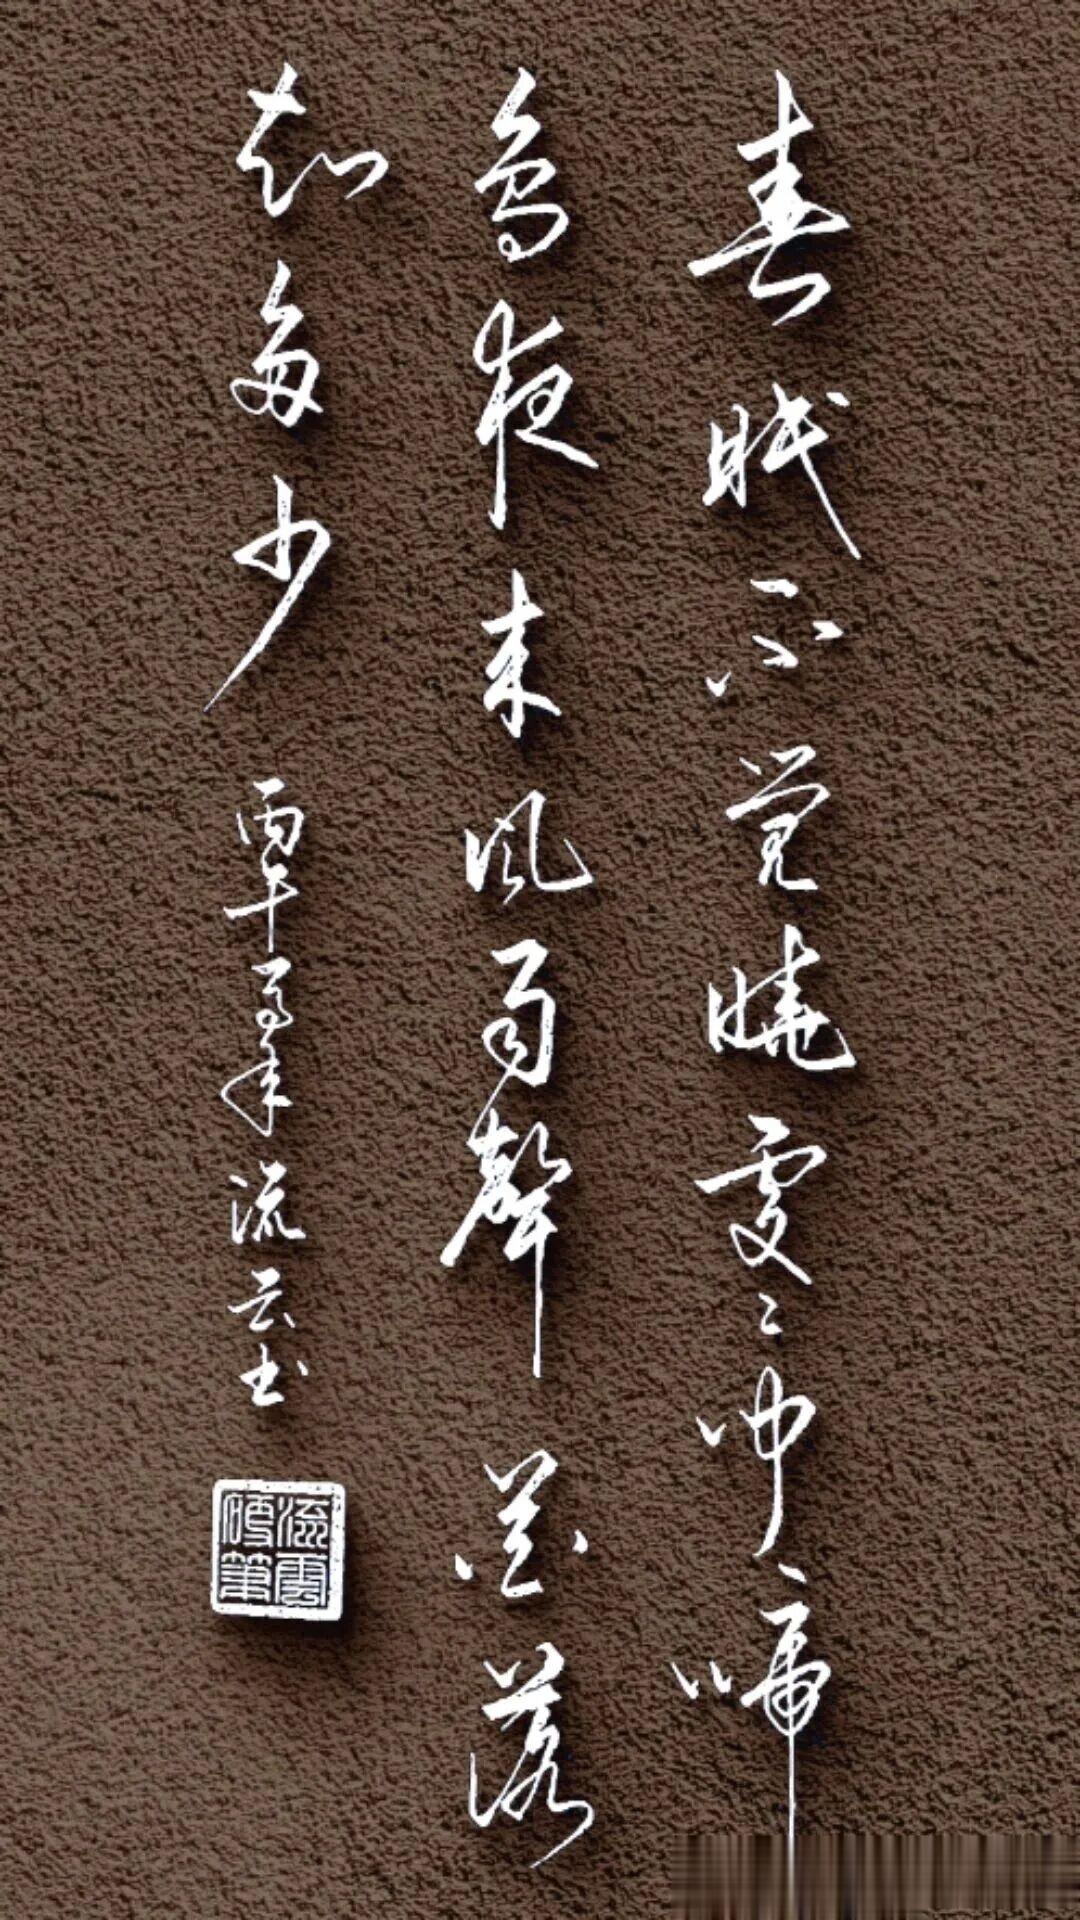 春眠不觉晓处处闻啼
鸟夜来风雨声花落
知多少
丙午马年流云书
流云砖笔